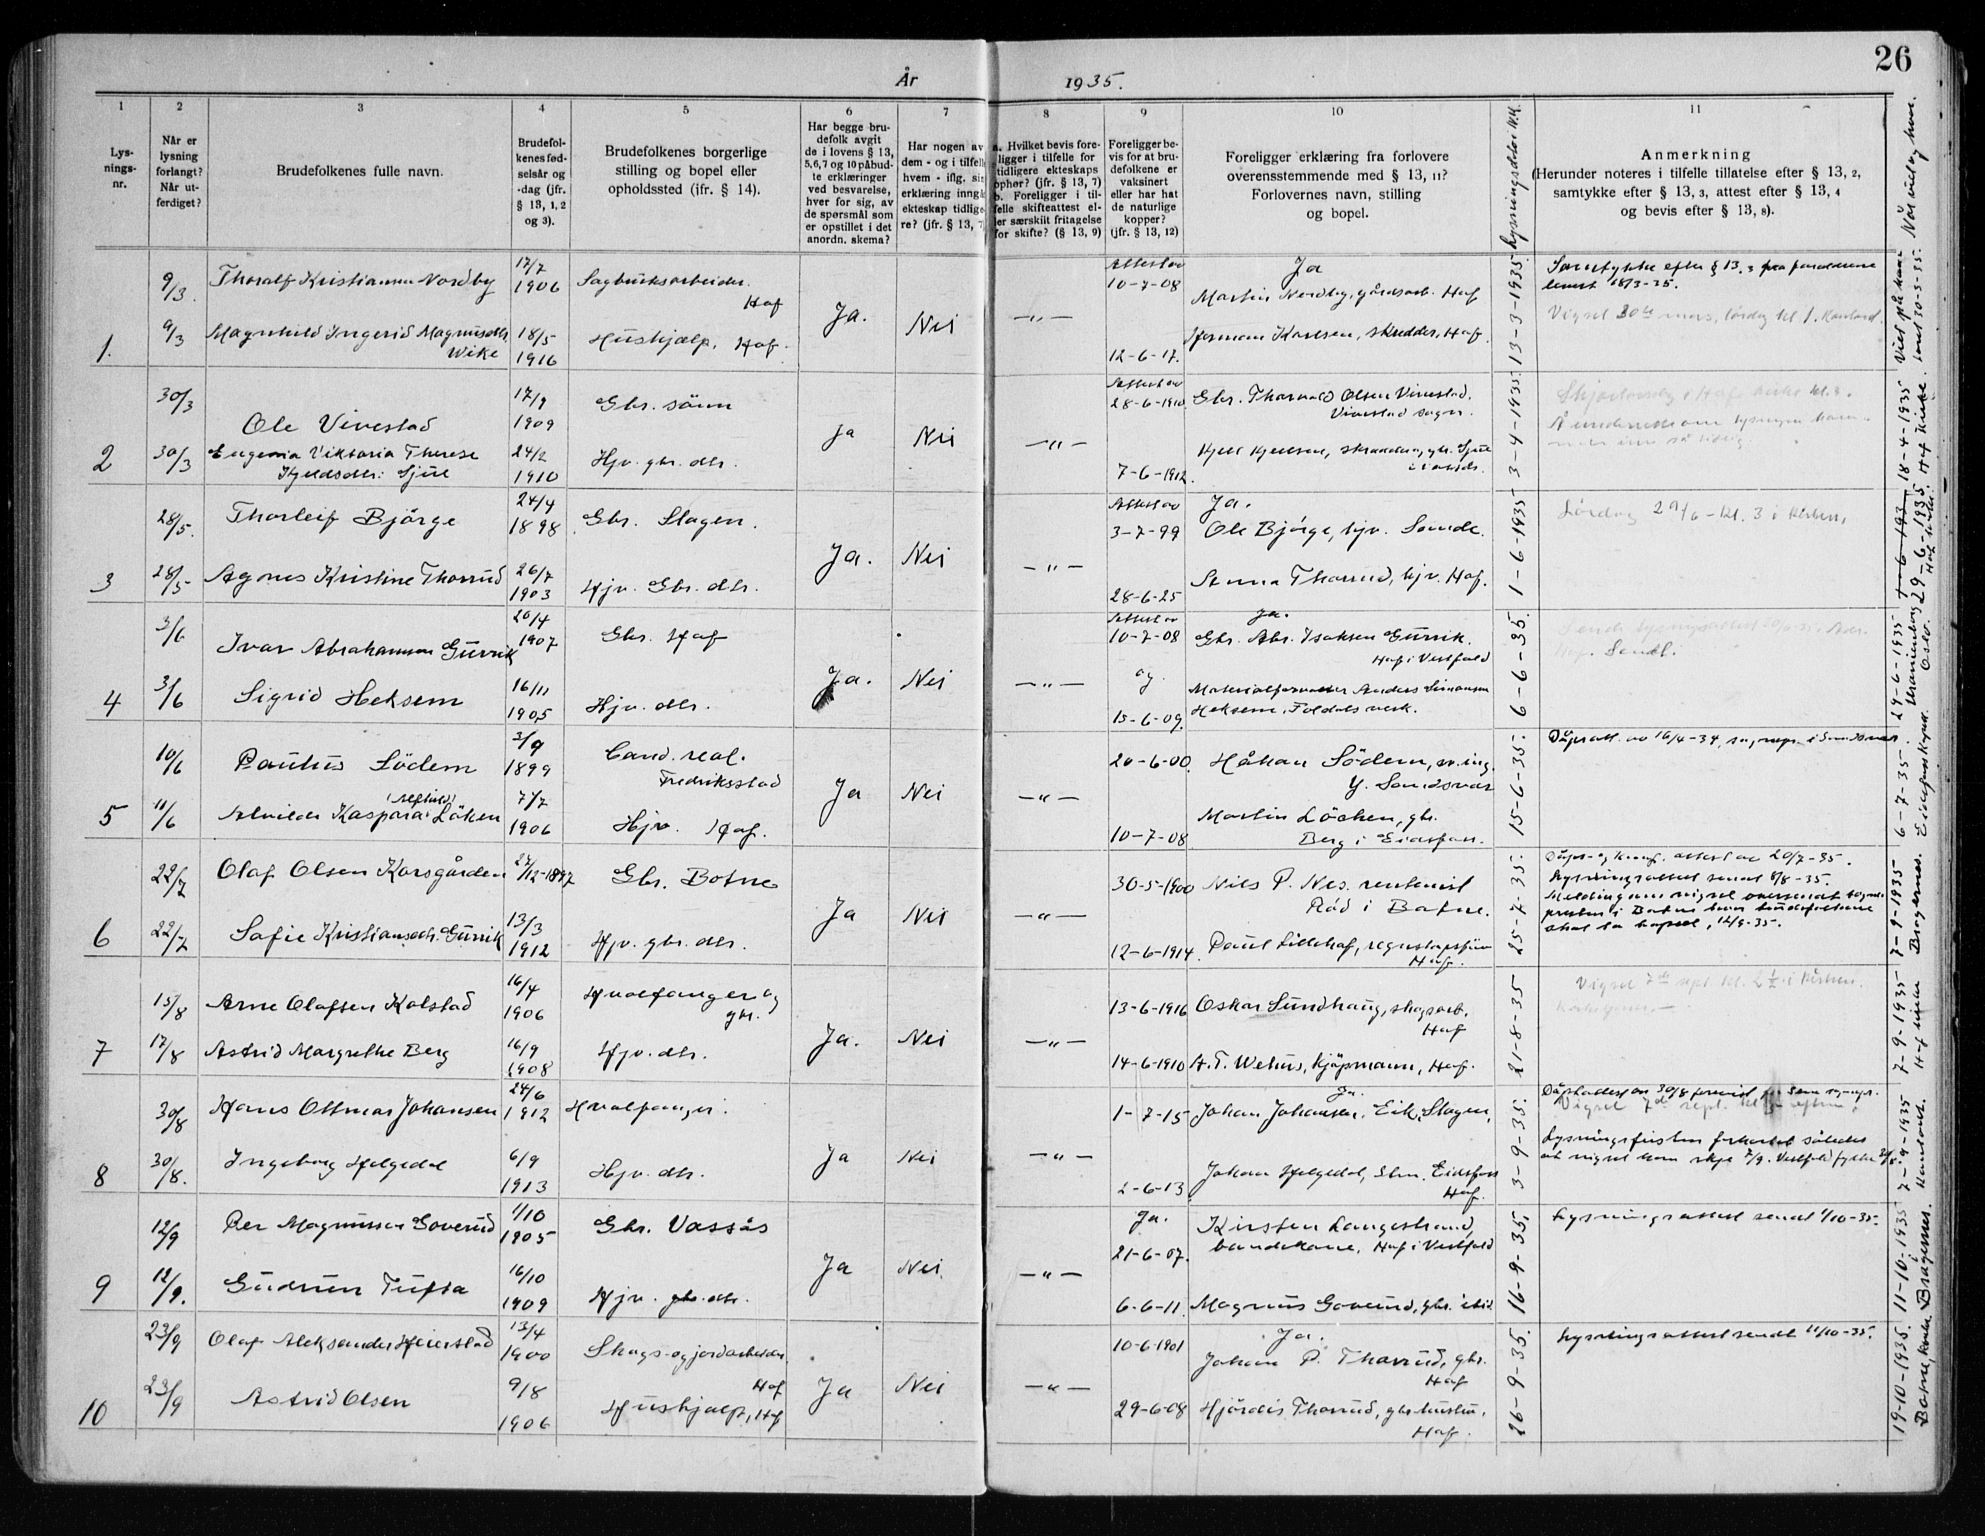 26
År 1935.
1
2
3
4
5
6
7
8
9
10
11
Lys-
nings-
nr.
Når er
lysning
forlangt?
Når ut-
ferdiget?
Brudefolkenes fulle navn.
Brudefol-
kenes fød-
selsår og
-dag (jfr.
§ 13, 1, 2
og 3).
Brudefolkenes borgerlige
stilling og bopel eller
opholdssted (jfr. § 14).
Har begge bru-
defolk avgit
de i lovens § 13,
5,6,7 og 10 påbud-
te erklæringer
ved besvarelse,
hver for sig, av
de spørsmål som
er opstillet i det
anordn. skema?
Har nogen av
dem - og i tilfelle
hvem - iflg. sin
erklæring inngå
ekteskap tidlige
re? (jfr. § 13, 7
a. Hvilket bevis fore-
ligger i tilfelle for
tidligere ekteskaps
ophør? (jfr. § 13, 7)
b. Foreligger i til-
felle skifteattest el-
ler særskilt fritagelse
for skifte? (§ 13, 9)
Foreligger be-
vis for at bru-
defolkene er
vaksinert
eller har hat
de naturlige
kopper?
(jfr. § 13, 12)
Foreligger erklæring fra forlovere
overensstemmende med § 13, 11?
Forlovernes navn, stilling
og bopel.
Anmerkning
(Herunder noteres i tilfelle tillatelse efter § 13, 2,
samtykke efter § 13, 3, attest efter § 13, 4
og bevis efter § 13, 8).
Når viet og hvor.
1.
9/3. Thoralf Kristiansen Nordby
17/7
1906
Sagbruksarbeider.
Hof
9/3 Magnhild Ingerid Magnusdtr.
Wike
18/5
1916
Hushjelp, Hof.
Ja.
Nei
—"—
Attest av
10-7-08
12-6-17.
Ja
Martin Nordby, gårdsarb. Hof
Herman Karlsen, skredder, Hof.
13-3-1935.
Samtykke efter § 13.3 fra foreldrene
levert 18/3-35.
Vigsel 30te mars, lørdag kl 1. Kontoret.
Viet på kon-
toret 30-3-35.
2
30/3
Ole Vivestad
17/9
1909
Gbr. sønn
30/3 Eugenia Viktoria Therese
Kjeldsdtr. Sjue
24/2
1910
Hjv. gbr. dtr.
Ja
Nei
—"—
Attest av
28-6-1910
7-6-1912.
Gbr. Thorvald Olsen Vivestad.
Vivestad sogn.
3-4-1935.
18-4-1935
Hof kirke.
3
28/5. Thorleif Bjørge
24/4
1898
Gbr. Slagen.
28/5 Agnes Kristine Thorrud
26/7
1903
Hjv. Gbr. dtr.
Ja.
Nei
—"—
Attest av
3-7-99
28-6-25
Ja.
Ole Bjørge, hjv. Sande.
Anna Thorrud, hjv. Hof.
1-6-1935
Lørdag 29/6 - kl. 3 i kirken.
29-6-1935
Hof kirke.
4
3/6
Ivar Abrahamsen Gurrik
20/4
1907
Gbr. Hof
3/6 Sigrid Heksem
16/11
1905
Hjv. dtr.
Ja.
Nei
—"—
Attest av
10-7-08
og
13-6-09.
Ja.
Gbr. Abr. Isaksen Gurrik.
Hof i Vestfold
Materialforvalter Anders Simonsen
Heksem, Foldals verk.
6-6-35.
Sendt.
24-6-1935
Oslo.
5
10/6 Paulus Södem
3/9
1899
Cand. real.
Fredriksstad
(Alfhild)
11/6 Alvilde Kaspara Löken
7/7
1906
Hjv. Hof.
Ja
Nei
—"—
20-6-00.
10-7-08
Håkon Södem, v.ing.
Y. Sandsvær
Martin Löchen, gbr.
Berg i Eidsfoss.
15-6-35.
Dåpsatt. av 16/4-34, sognepr. i Sandsvær
6-7-35.
Eidsfoss Kirke.
6
22/7 Olaf Olsen Korsgården
27/12-1897
Gbr. Botne
22/7 Sofie Kristiansdtr. Gurrik
13/3
1912
Hjv. gbr. dtr.
Ja
Nei
—"—
30-5-1900
12-6-1914
Nils P. Nes. rentenist
Röd i Botne.
Paul Lillehof, regnskapsfører
Hof.
25-7-35.
Dåps- og konf. attest av 20/7-35.
Lysningsattest sendt 8/8-35.
Melding om vigsel oversendt sogne-
presten i Botne hvor brudefolkene
skal ta bopel, 14/9-35.
7-9-1935
Bragernes.
7
15/8 Arne Olafsen Kolstad
16/4
1906
Hvalfanger og
gbr.
17/8 Astrid Margrethe Berg
16/9
1908
Hjv. dtr.
Ja.
Nei
—"—
13-6-1916
14-6-1910
Oskar Sundhaug, skogsarb.
Hof
A. T. Wehus, Kjøpmann, Hof.
21-8-35
Vigsel 7de sept. kl. 2½ i kirken.
7-9-1935
Hof kirke
8
30/8 Hans Ottmar Johansen
24/6
1912
Hvalfanger.
30/8. Ingeborg Helgedal
6/9
1913
Hjv. dtr.
Ja
Nei
—"—
1-7-15
2-6-13
Ja.
Johan Johansen, Eik, Slagen,
Johan Helgedal, Stm. Eidsfoss
Hof.
3-9-35.
Lysningsfristen forkortet således
at vigsel kan skje 7/9. Vestfold fylke
7-9-1935
Kontoret.
9
12/9 Per Magnussen Goverud
1/10
1905
Gbr. Vassås
12/9. Gudrun Tufta
16/10
1909
Hjv. gbr. dtr.
Ja
Nei.
—"—
Ja.
21-6-07.
6-6-11.
Kirsten Langestrand,
bondekone, Hof i Vestfold
Magnus Goverud, gbr. ibid.
16-9-35.
Lysningsattest sendt 1/10-35.
11-10-1935
i Bragernes.
10
23/9 Olaf Aleksander Heierstad
13/4
1900
Skogs- og jordarbeider
Hof
23/9 Astrid Olsen
9/8
1906
Hushjelp, Hof
Ja
Nei
—"—
10-6-1901
29-6-08
Ja.
Johan P. Thorrud, gbr.
Hof
Hjördis Thorrud, gbr. hustru,
Hof.
26-9-35.
Lysningsattest sendt 11/10-35.
19-10-1935.
Botne kirke